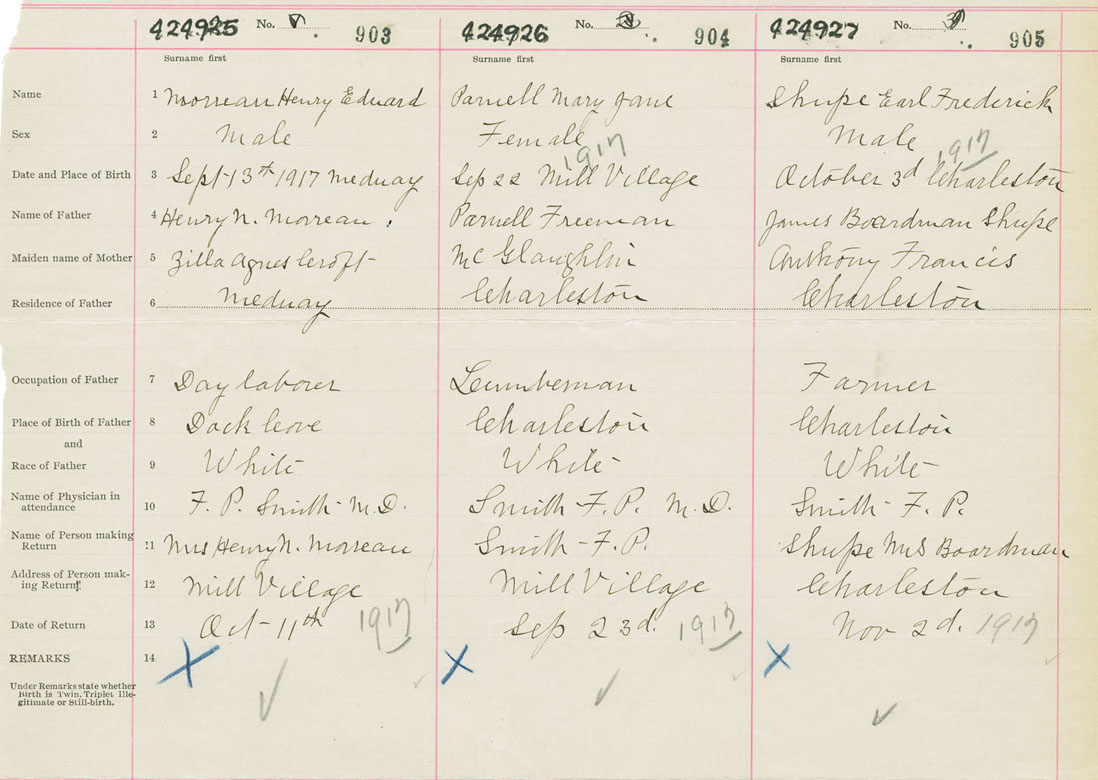 424925 No. 903 424926 No. 904 424927 No. 905
Surname first Surname first Surname first
Name 1 Morreau Henry Edward Parnell Mary Jane Shupe Earl Frederick
Sex 2 Male Female Male
1917 1917
Date and Place of Birth 3 Sept 13th 1917 Medway Sep 22 Mill Village October 3d Charleston
Name of Father 4 Henry N. Morreau Parnell Freeman James Boardman Shupe
Maiden name of Mother 5 Zilla Agnes Croft McGlaughlin Anthony Francis
Residence of Father 6 Medway Charleston Charleston
Occupation of Father 7 Day laborer Lumberman Farmer
Place of Birth of Father 8 Charleston Charleston
and
Race of Father 9 White White White
Name of Physician in
attendance 10 F. P. Smith M.D. Smith F. P. M.D. Smith F. P.
Name of Person making
Return 11 Mrs Henry N. Morreau Smith F. P. Shupe Mrs Boardman
Address of Person mak-
ing Return 12 Mill Village Mill Village Charleston
Date of Return 13 Oct 11th 1917 Sep 23d. 1917 Nov 2d. 1917
REMARKS 14 X X X
Under Remarks state whether
Birth is Twin, Triplet Ille-
gitimate or Still-birth.